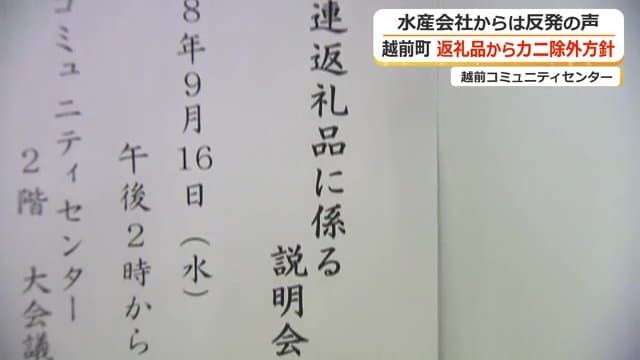 水産会社からは反発の声
越前町 返礼品からカニ除外方針
越前コミュニティセンター
連返礼品に係る
説明会
8年9月16日(水)
午後2時から
コミュニティセンター
2階 大会議